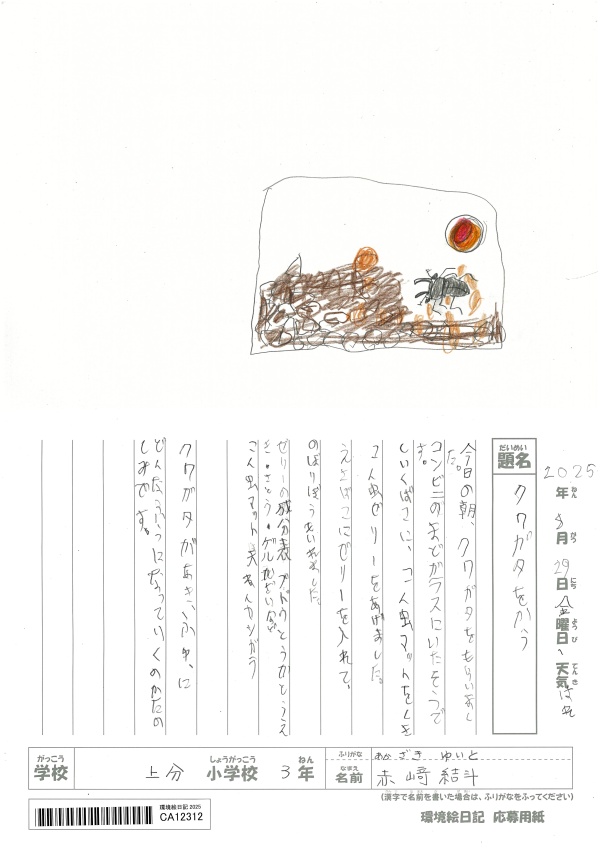 2025年8月29日(金曜日)天気はれ
題名 クワガタをかう
今日の朝、クワガタをもらいまし
た。
コンビニのまどガラスにいたそうで
す。
しいくばこに、こん虫マットをしき
こん虫ゼリーをあげました。
えさばこにゼリーを入れて、
のぼりぼうもいれました。
ゼリーの成分表 ブドウとうかとうえ
き・さとう・ゲルかざいなど
こん虫マット 天ねん
クワガタがあき、ふゆ、に
どんなふうになっていくのかたの
しみです。
がっこう 学校 上分 しょうがっこう 小学校 3 ねん 年
ふりがな あかざき ゆいと
なまえ 名前 赤﨑 結斗
(漢字で名前を書いた場合は、ふりがなをふってください)
環境絵日記 2025
CA12312
環境絵日記 応募用紙